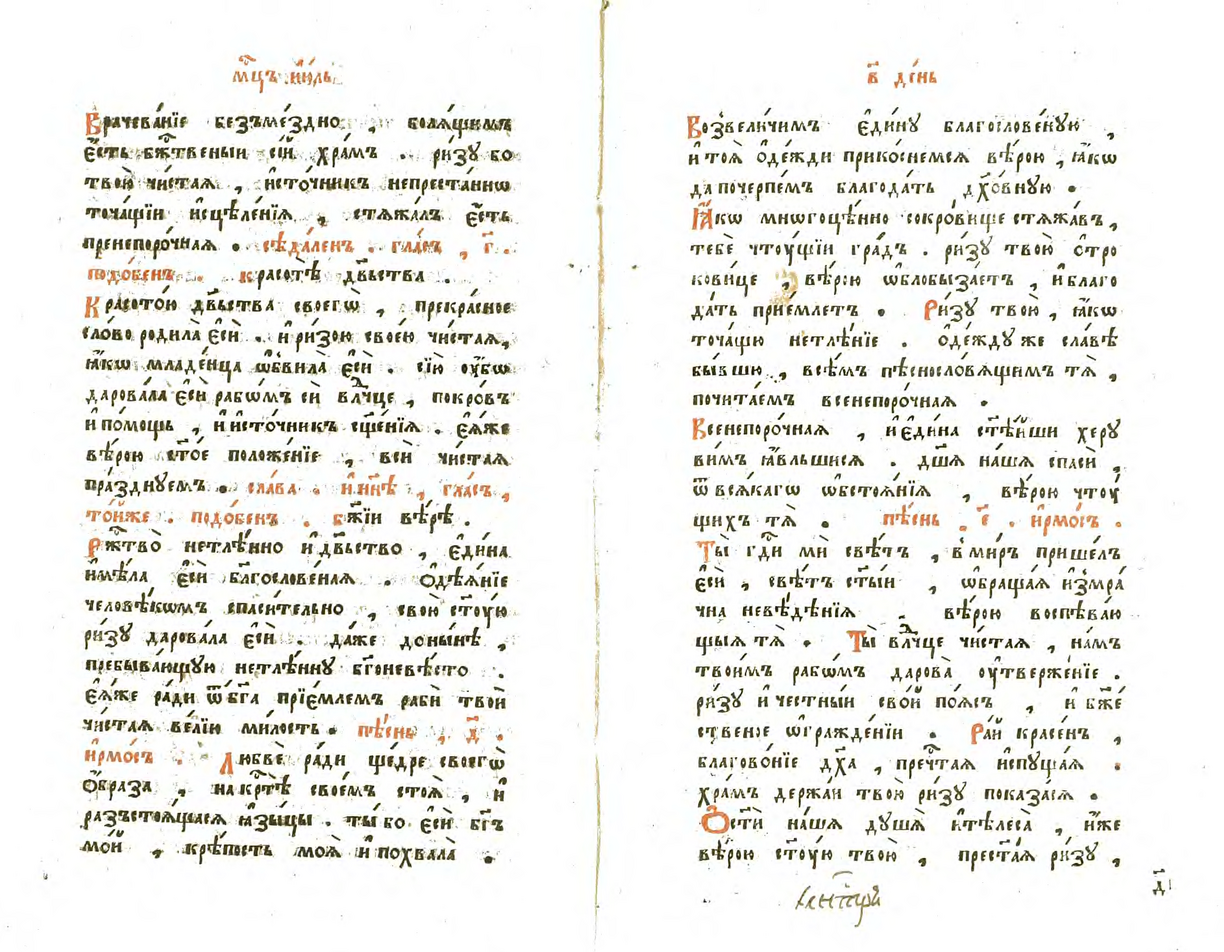 мц҃ъ ию́ль
Врачева́нїе безъме́здно , боля́щимъ
є҆́сть бж҃твеныи се́й хра́мъ . ри́зу бо
твою̀ чи́стая , и҆сто́чникъ непреста́ннѡ
точа́щїи и҆сцѣле́нїя , стяжа́лъ є҆́сть
пренепоро́чная . сѣда́ленъ . гла́съ , г҃ .
подо́бенъ . красотѣ̀ дв҃ьства .
Красото́ю дв҃ьства своегѡ̀ , прекра́сное
сло́во родила̀ є҆сѝ . и҆ ри́зою свое́ю чи́стая,
ꙗ҆́кѡ младе́нца ѡ҆бвила̀ є҆сѝ . сїю̀ ѹ҆́бѡ
дарова́ла є҆сѝ рабѡ́мъ сѝ влⷣчце , покро́въ
и҆ по́мощь , и҆ и҆сто́чникъ сщ҃е́нїя . є҆я́же
вѣ́рою ст҃о́е положе́нїе , всѝ чи́стая
пра́зднуемъ . сла́ва . и҆ ны́нѣ , гла́съ ,
то́йже . подо́бенъ . бж҃їи вѣ́рѣ .
Рж҃тво̀ нетлѣ́нно и҆ дв҃ьство , є҆ди́на
и҆мѣ́ла є҆сѝ бл҃гослове́ная . Ѻ҆дѣя́нїе
человѣ́кѡмъ спаси́тельно , свою̀ ст҃у́ю
ри́зу дарова́ла є҆сѝ . да́же доны́нѣ ,
пребыва́ющую нетлѣ́нну бг҃оневѣ́сто .
є҆я́же ра́ди ѿ бг҃а прїе́млемъ рабѝ твоѝ
чи́стая ве́лїю ми́лость . пѣ́снь , д҃ .
и҆рмо́съ . Любвѐ ра́ди ще́дре своегѡ̀
ѻ҆́браза , на крⷭ҇тѣ̀ свое́мъ стоя̀ , и҆
разъстоя́щася ꙗ҆зы́цы . ты́ бо є҆сѝ бг҃ъ
мо́й , крѣ́пость моя̀ и҆ похвала̀ .
в҃ де́нь
Возвели́чимъ є҆ди́ну благослове́ную ,
и҆ тоя̀ ѻ҆де́жди прикосне́мся вѣ́рою , ꙗ҆́кѡ
да почерпе́мъ благода́ть дх҃о́вную .
Ꙗ҆́кѡ мнѡгоцѣ́нно сокро́вище стяжа́въ ,
тебѐ чтоу́щїи гра́дъ . ри́зу твою̀ ѻ҆тро
кови́це , вѣ́рою ѡ҆блобыза́етъ , и҆ благо
да́ть прие́млетъ . Ри́зу твою̀ , ꙗ҆́кѡ
точа́щю нетлѣ́нїе . ѻ҆де́жду же сла́вѣ
бы́вшю , всѣ́мъ пѣснословя́щимъ тя̀ ,
почита́емъ всенепоро́чная .
Всенепоро́чная , и҆ є҆ди́на ст҃ѣ́йши херу
ви́мъ ꙗ҆́вльшися . дш҃я на́шя спасѝ ,
ѿ вся́кагѡ ѡ҆бстоя́нїя , вѣ́рою чтоу́
щихъ тя̀ . пѣ́снь . є҃ . и҆рмо́съ .
Ты̀ гдⷭ҇и мѝ свѣ́тъ , в ми́ръ прише́лъ
є҆сѝ , свѣ́тъ ст҃ы́и , ѡ҆браща́я и҆змра́
чна невѣ́дѣнїя вѣ́рою воспѣва́ю
щыя тя̀ . Ты̀ влⷣчце чи́стая , на́мъ
твои́мъ рабо́мъ дарова̀ ѹ҆твержє́нїе .
ри́зу и҆ че́стный сво́й по́ясъ , и҆ бж҃е́
ственое ѡ҆гражде́нїи . Ра́й кра́сенъ ,
благово́нїе дх҃а , преч҃тая и҆спуща́я .
хра́мъ держа́й твою̀ ри́зу показа́ся .
Ѻ҆с҃ти́ на́шя ду́шя и҆ тѣлеса̀ , и҆́же
вѣ́рою ст҃у́ю твою̀ , прест҃а́я ри́зу ,
д҃